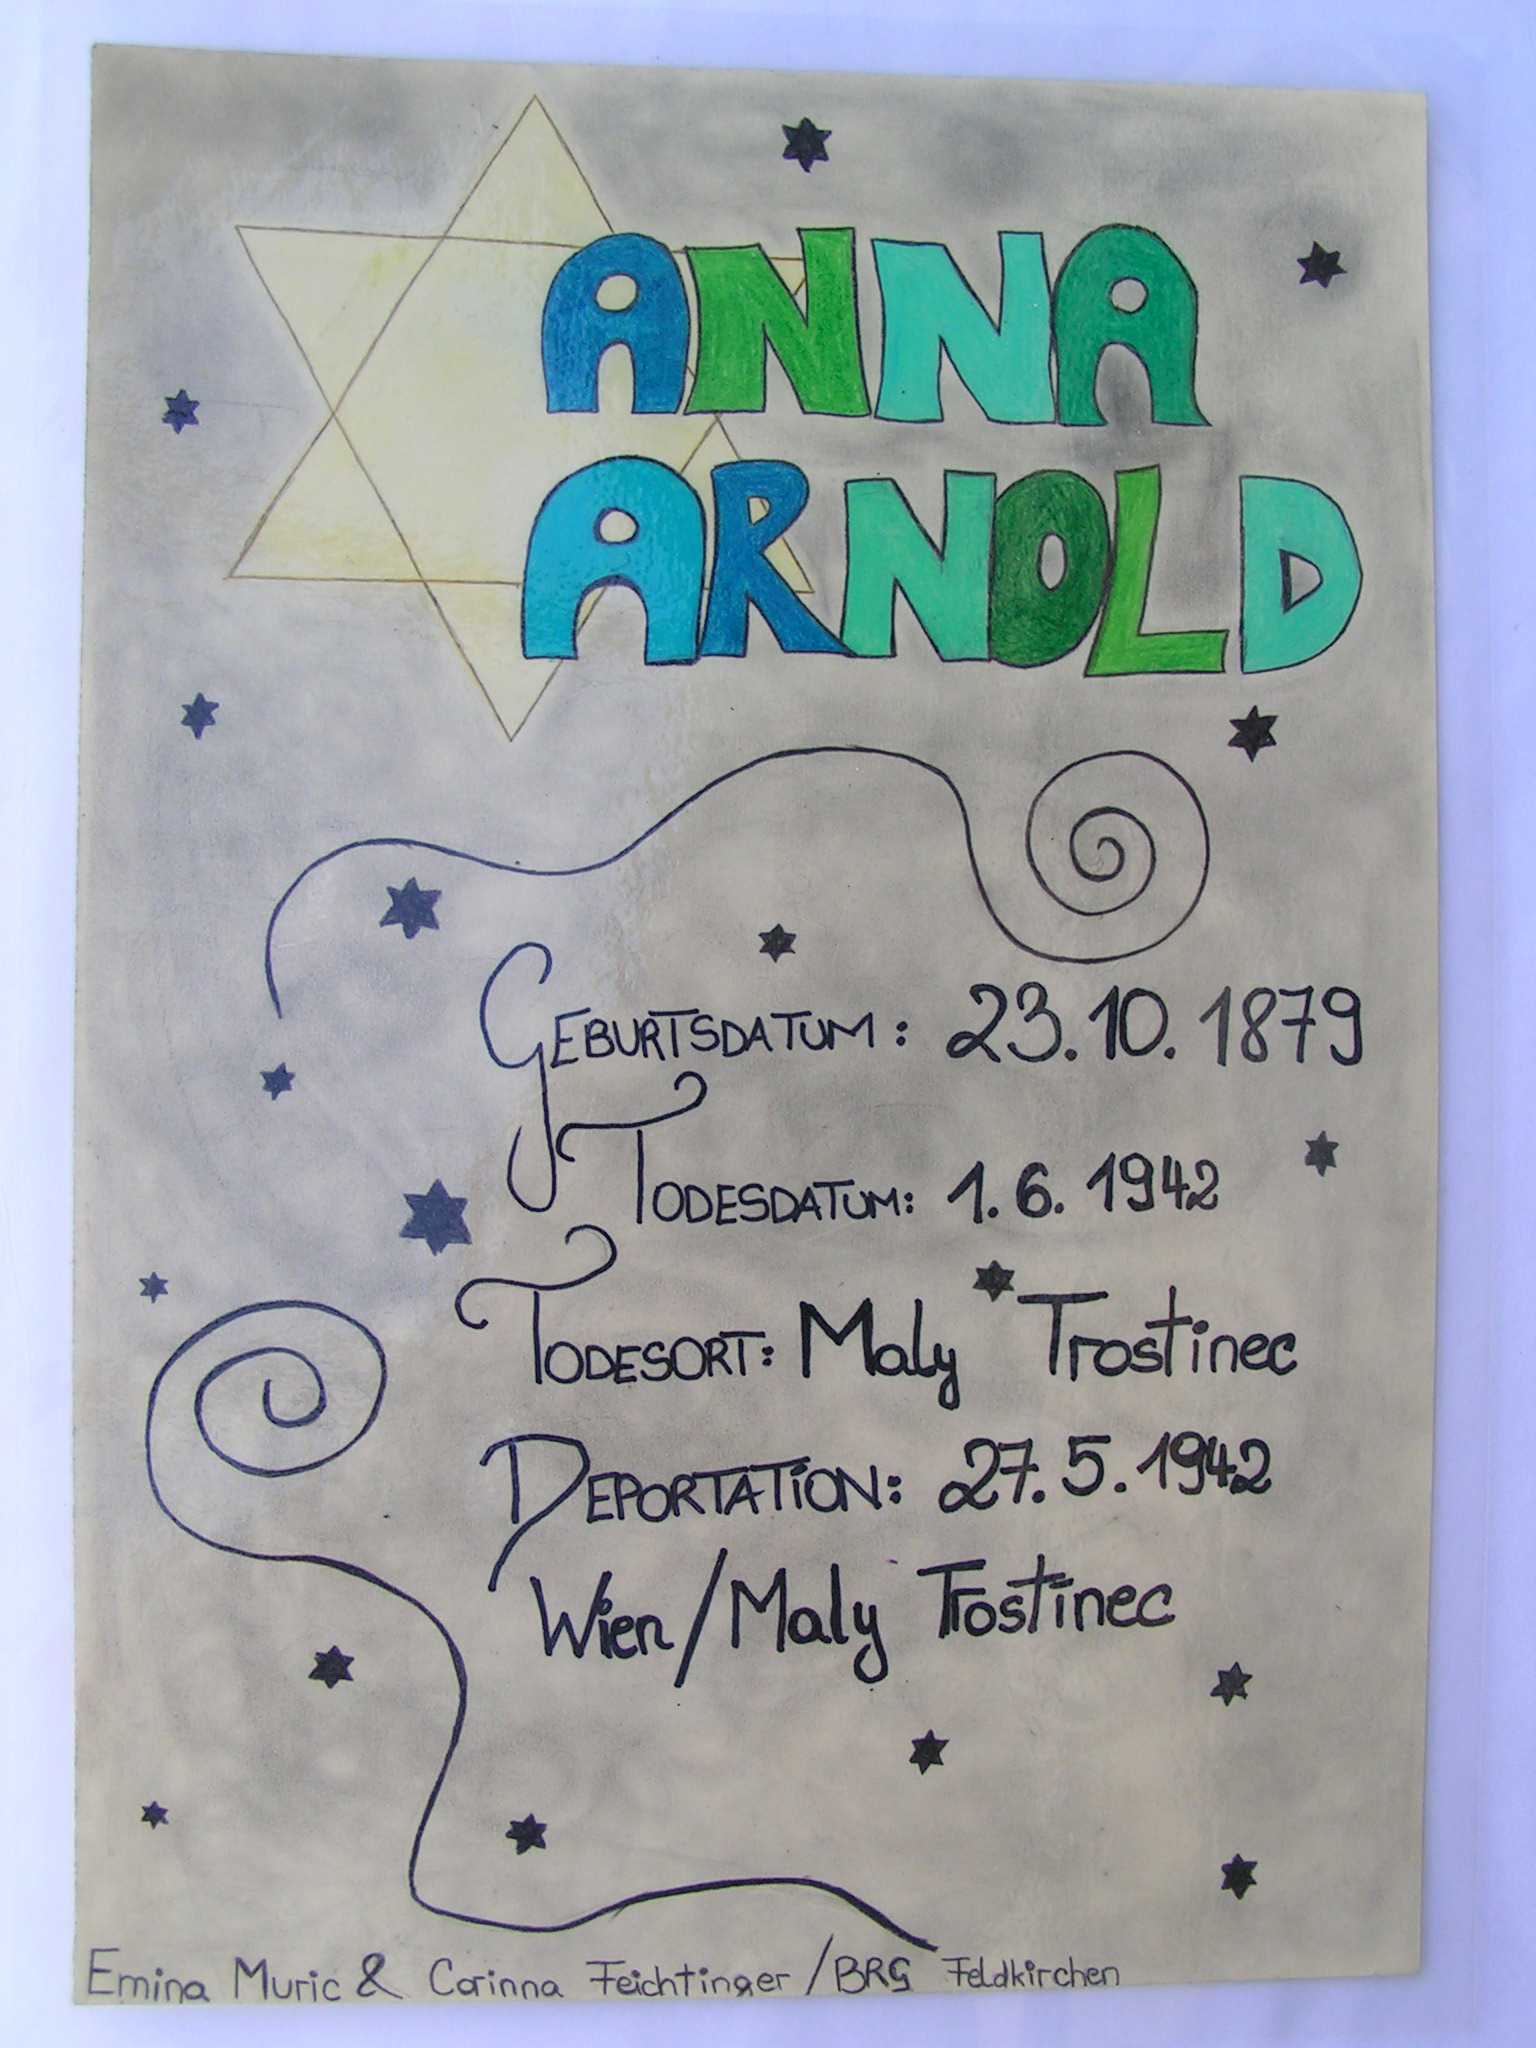 ANNA
ARNOLD
GEBURTSDATUM: 23.10.1879
TODESDATUM: 1.6.1942
TODESORT: Maly Trostinec
DEPORTATION: 27.5.1942
Wien/Maly Trostinec
Emina Muric & Corinna Feichtinger/BRG Feldkirchen